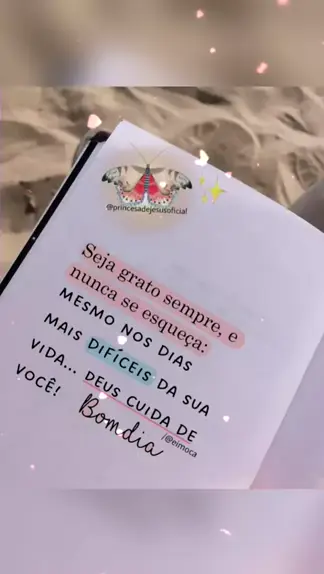 @princesadejesusoficial
Seja grato sempre, e
nunca se esqueça:
MESMO NOS DIAS
MAIS DIFÍCEIS DA SUA
VIDA... DEUS CUIDA DE
VOCÊ!
Bomdia
/@eimoca